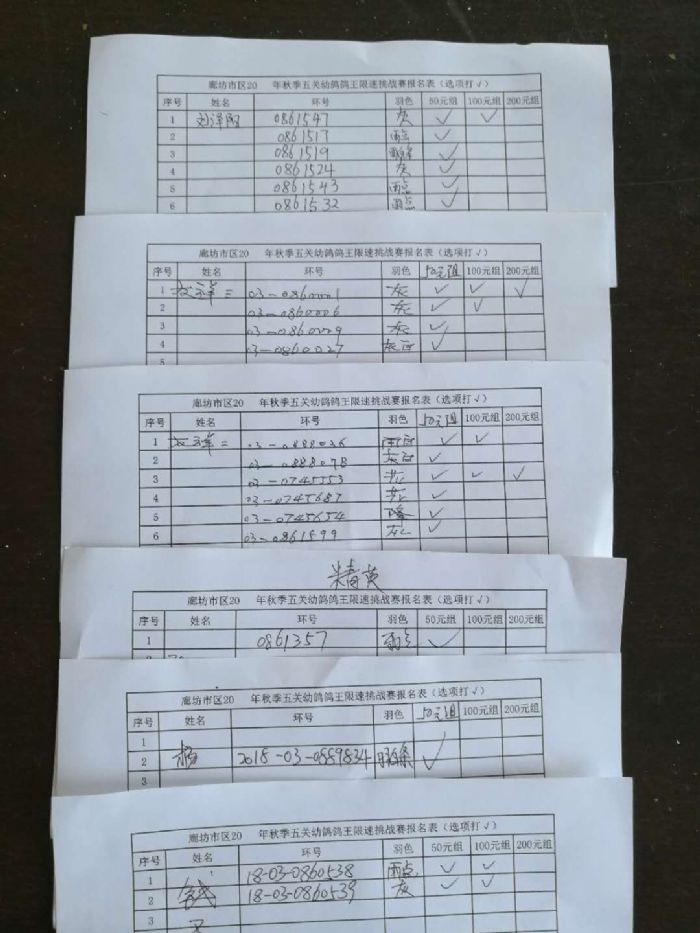 廊坊市区20 年秋季五关幼鸽鸽王限速挑战赛报名表(选项打√)
序号 姓名 环号 羽色 50元组 100元组 200元组
1 0861547 灰 √ √
2 0861517 雨点 √
3 0861519 √
4 0861524 灰 √
5 0861543 雨点 √
6 0861532 雨点 √
廊坊市区20 年秋季五关幼鸽鸽王限速挑战赛报名表(选项打√)
序号 姓名 环号 羽色 50元组 100元组 200元组
1 03-0860001 灰 √ √ √
2 03-0860006 灰 √ √
3 03-0860009 灰 √
4 03-0860027 灰白 √
廊坊市区20 年秋季五关幼鸽鸽王限速挑战赛报名表(选项打√)
序号 姓名 环号 羽色 50元组 100元组 200元组
1 03-0888036 雨白 √ √
2 03-0888078 灰白 √
3 03-0745553 √ √ √
4 03-0745687 √
5 03-0745654 √
6 03-0861599 √
米春英
廊坊市区20 年秋季五关幼鸽鸽王限速挑战赛报名表(选项打√)
序号 姓名 环号 羽色 50元组 100元组 200元组
1 0861357 雨点 √
廊坊市区20 年秋季五关幼鸽鸽王限速挑战赛报名表(选项打√)
序号 姓名 环号 羽色 50元组 100元组 200元组
1
2 杨 2018-03-0889834 √
3
廊坊市区20 年秋季五关幼鸽鸽王限速挑战赛报名表(选项打√)
序号 姓名 环号 羽色 50元组 100元组 200元组
1 18-03-0860538 雨点 √ √
2 钱 18-03-0860539 灰 √ √
3